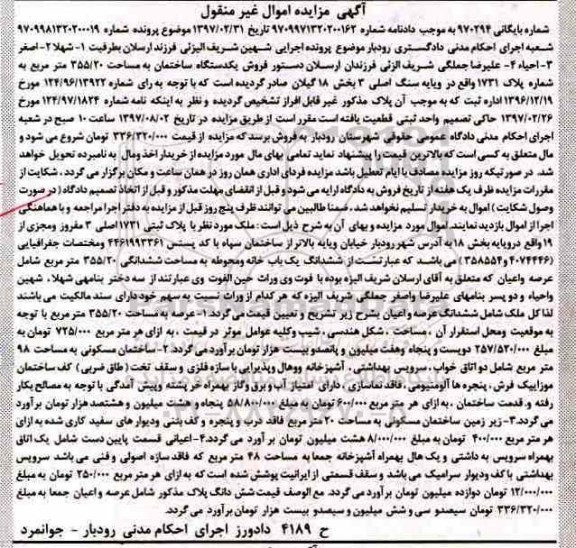 آگهی مزایده اموال غیر منقول
شماره بایگانی ۹۷۰۲۹۴ به موجب دادنامه شماره ۹۷۰۹۹۷۱۳۲۰۲۰۰۱۶۲ تاریخ ۱۳۹۷/۰۲/۳۱ موضوع پرونده شماره ۹۷۰۹۹۸۱۳۲۰۲۰۰۰۱۹
شعبه اجرای احکام مدنی دادگستری رودبار موضوع پرونده اجرایی شهین شریف الیزئی فرزند ارسلان بطرفیت ۱- شهلا ۲-اصغر
۳-احیاء ۴- علیرضا جملگی شریف الزئی فرزندان ارسلان دستور فروش یکدستگاه ساختمان به مساحت ۳۵۵/۲۰ متر مربع به
شماره پلاک ۱۷۳۱ واقع در ویایه سنگ اصلی ۳ بخش ۱۸ گیلان صادر گردیده است که با توجه به رای شماره ۱۲۴/۹۶/۱۳۹۲۲ مورخ
۱۳۹۶/۱۲/۱۹ اداره ثبت که به موجب آن پلاک مذکور غیر قابل افراز تشخیص گردیده و نظر به اینکه نامه شماره ۱۲۴/۹۷/۱۸۲۴ مورخ
۱۳۹۷/۰۲/۲۶ حاکی تصمیم واحد ثبتی قطعیت یافته است مقرر است از طریق مزایده در تاریخ ۱۳۹۷/۰۸/۰۲ ساعت ۱۰ صبح در شعبه
اجرای احکام مدنی دادگاه عمومی حقوقی شهرستان رودبار به فروش برسد که مزایده از قیمت ۳۳۶/۳۲۰/۰۰۰ تومان شروع می شود و
مال متعلق به کسی است که بالاترین قیمت را پیشنهاد نماید تمامی بهای مال مورد مزایده از خریدار اخذ و مال به نامبرده تحویل خواهد
شد. در صورتیکه روز مزایده مصادف با ایام تعطیل باشد مزایده فردای اداری همان روز در همان ساعت و مکان برگزار می گردد. شکایت از
مقررات مزایده ظرف یک هفته از تاریخ فروش به دادگاه ارایه می شود و قبل از انقضای مهلت مذکور و قبل از اتخاذ تصمیم دادگاه (در صورت
وصول شکایت) اموال به خریدار تسلیم نخواهد شد. ضمنا طالبین می توانند ظرف پنج روز قبل از مزایده به دفتر اجرا مراجعه و با هماهنگی
اجرا از اموال بازدید نمایند. اموال مورد مزایده و بهای آن به شرح ذیل است: ملک مورد نظر با پلاک ثبتی ۱۷۳۱ اصلی ۳ مفروز ومجزی از
۱۹ واقع در ویایه بخش ۱۸ به آدرس شهر رودبار خیابان ویایه بالاتر از ساختمان سپاه با کد پستی ۴۴۶۱۹۹۳۳۶۱ ومختصات جغرافیایی
(۳۵۸۵۵۴و ۴۰۷۴۴۴۶) می باشد که عبارتست از ششدانگ یک باب خانه ومحوطه به مساحت ششدانگی ۳۵۵/۲۰ متر مربع شامل
عرصه واعیان که متعلق به آقای ارسلان شریف الیزه بوده با فوت وی وراث حین الفوت وی عبارتند از سه دختر بنامهای شهلا، شهین
واحیاء و دو پسر بنامهای علیرضا واصغر جملگی شریف الیزه که هر کدام از وراث نسبت به سهم خود دارای سند مالکیت می باشند
لذا کل ملک شامل ششدانگ عرصه واعیان بشرح زیر تشریح و تعیین قیمت می گردد ۱- عرصه به مساحت ۳۵۵/۲۰ متر مربع با توجه
به موقعیت ومحل استقرار آن ، مساحت ، شکل هندسی ، شیب وکلیه عوامل موثر در قیمت ، به ازای هر متر مربع ۷۲۵/۰۰۰ تومان به
مبلغ ۲۵۷/۵۲۰/۰۰۰ دویست و پنجاه وهفت میلیون و پانصدو بیست هزار تومان برآورد می گردد. ۲- ساختمان مسکونی به مساحت ۹۸
متر مربع شامل دو اتاق خواب ، سرویس بهداشتی ، آشپزخانه وهال وپذیرایی با سازه فلزی و سقف تخت ( طاق ضربی) کف ساختمان
موزاییک فرش، پنجره ها آلومنیومی، فاقد نماسازی ، دارای امتیاز آب و برق وگاز بهمراه خر پشته وپیش آمدگی با توجه به مصالح بکار
رفته و قدمت ساختمان ، به ازای هر متر مربع ۶۰۰/۰۰۰ تومان به مبلغ ۵۸/۸۰۰/۰۰۰ پنجاه و هشت میلیون و هشتصد هزار تومان بر آورد
می گردد.۳- زیر زمین ساختمان مسکونی به مساحت ۲۰ متر مربع فاقد درب و پنجره و کف بتنی ودیوار های سفید کاری شده به ازای
هر متر مربع ۴۰۰/۰۰۰ تومان به مبلغ ۸/۰۰۰/۰۰۰ هشت میلیون تومان بر آورد می گردد.۴- اعیانی قسمت پایین دست شامل یک اتاق
بهمراه سرویس به داشتی و یک هال بهمراه آشپزخانه جمعا به مساحت ۴۸ متر مربع که فاقد سازه اصولی و فنی می باشد سرویس
بهداشتی با کف ودیوار سرامیک می باشد و سقف قسمتی از ایرانیت پوشش شده است که به ازای هر متر مربع ۲۵۰/۰۰۰ تومان به مبلغ
۱۲/۰۰۰/۰۰۰ تومان دوازده میلیون تومان بر آورد می گردد. مع الوصف قیمت شش دانگ پلاک مذکور شامل عرصه و اعیان جمعا به مبلغ
۳۳۶/۳۲۰/۰۰۰ تومان سیصدو سی و شش میلیون و سیصدو بیست هزار تومان برآورد می گردد.
ح ۴۱۸۹ دادورز اجرای احکام مدنی رودبار - جوانمرد